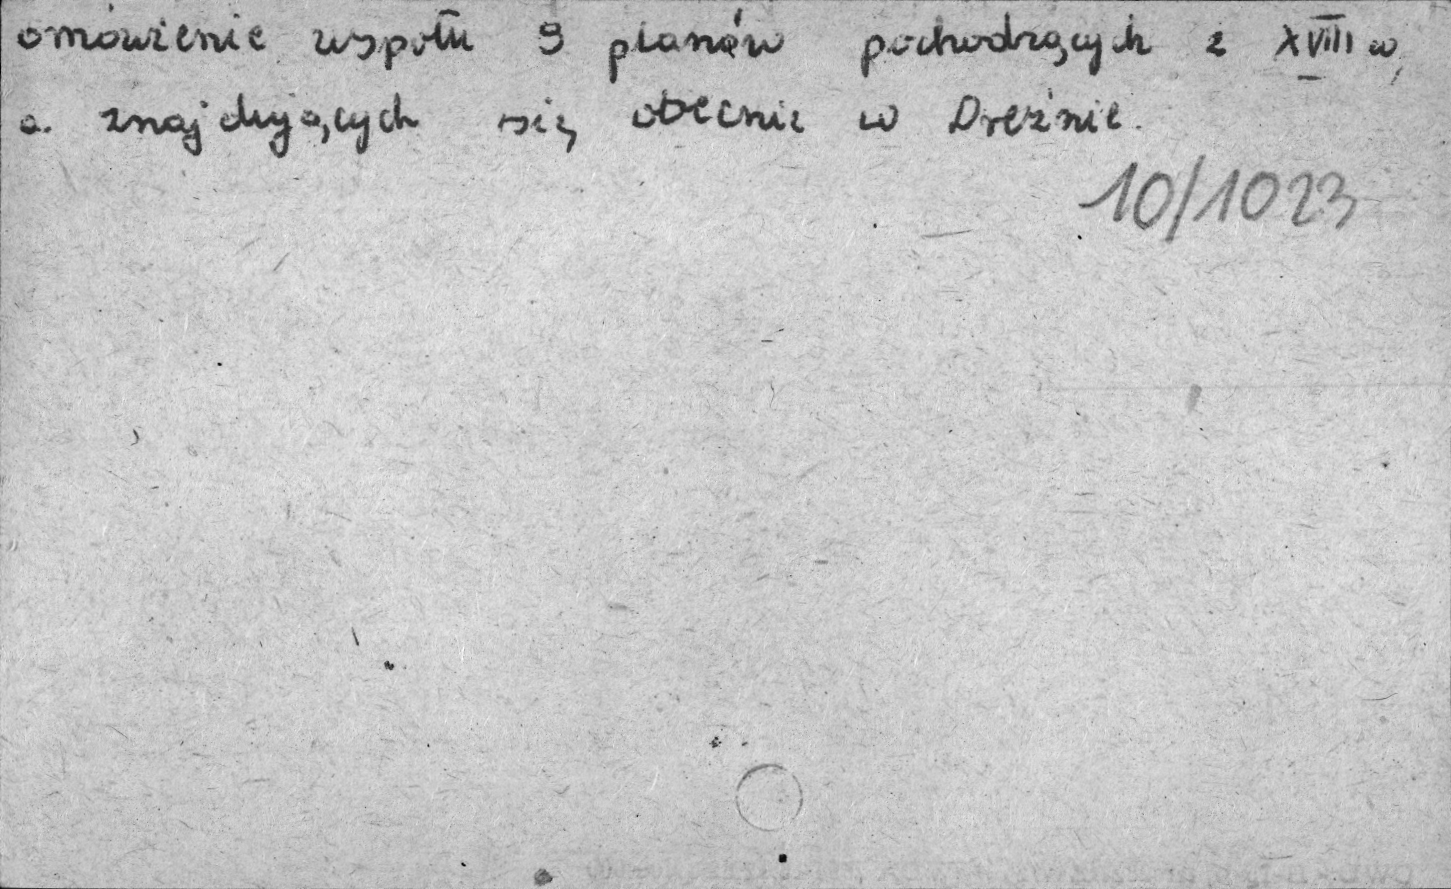 omówienie zespołu 9 planów pochodzących z XVIII w,
a. znajdujących się obecnie w Dreźnie.
10/1023